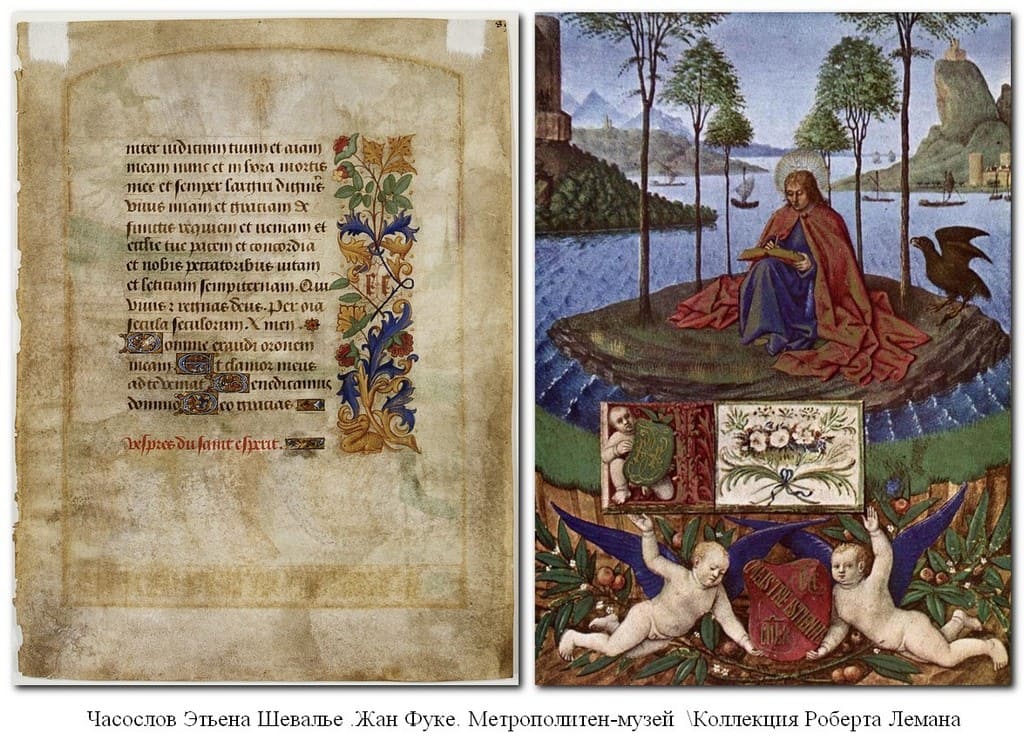 niter iudicium tuum et aiam
meam nunc et in hora mortis
mee et semper largiri digneris
viuis miam et gratiam de
functis requiem et veniam et
ecclie tue pacem et concordia
et nobis peccatoribus vitam
et leticiam sempiternam. Qui
viuis z regnas deus. Per oia
secula seculorum. Amen
Domine exaudi oronem
meam Et clamor meus
ad te veniat Benedicamus
domino Deo gracias
Vespres du saint esperit.
Часослов Этьена Шевалье .Жан Фуке. Метрополитен-музей \Коллекция Роберта Лемана